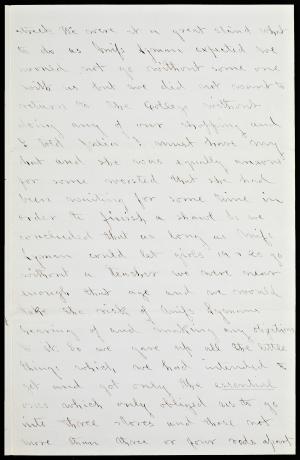 week. We were at a great stand what
to do as Miss Lyman expected we
would not go without some one
with us but we did not want to
return to the College without
doing any of our shopping and
I told Julia I must have my
hat and she was equally anxious
for some worsted that she had
been waiting for some time in
order to finish a shawl. So we
concluded that as long as Miss
Lyman would let girls 19 & 20 go
without a teacher we were near
enough that age and we would
take the risk of Miss Lymans
hearing of and making any objections
to it. So we gave up all the little
things which we had intended to
get and got only the essential
ones which only obliged us to go
into three stores and those not
more than three or four rods apart